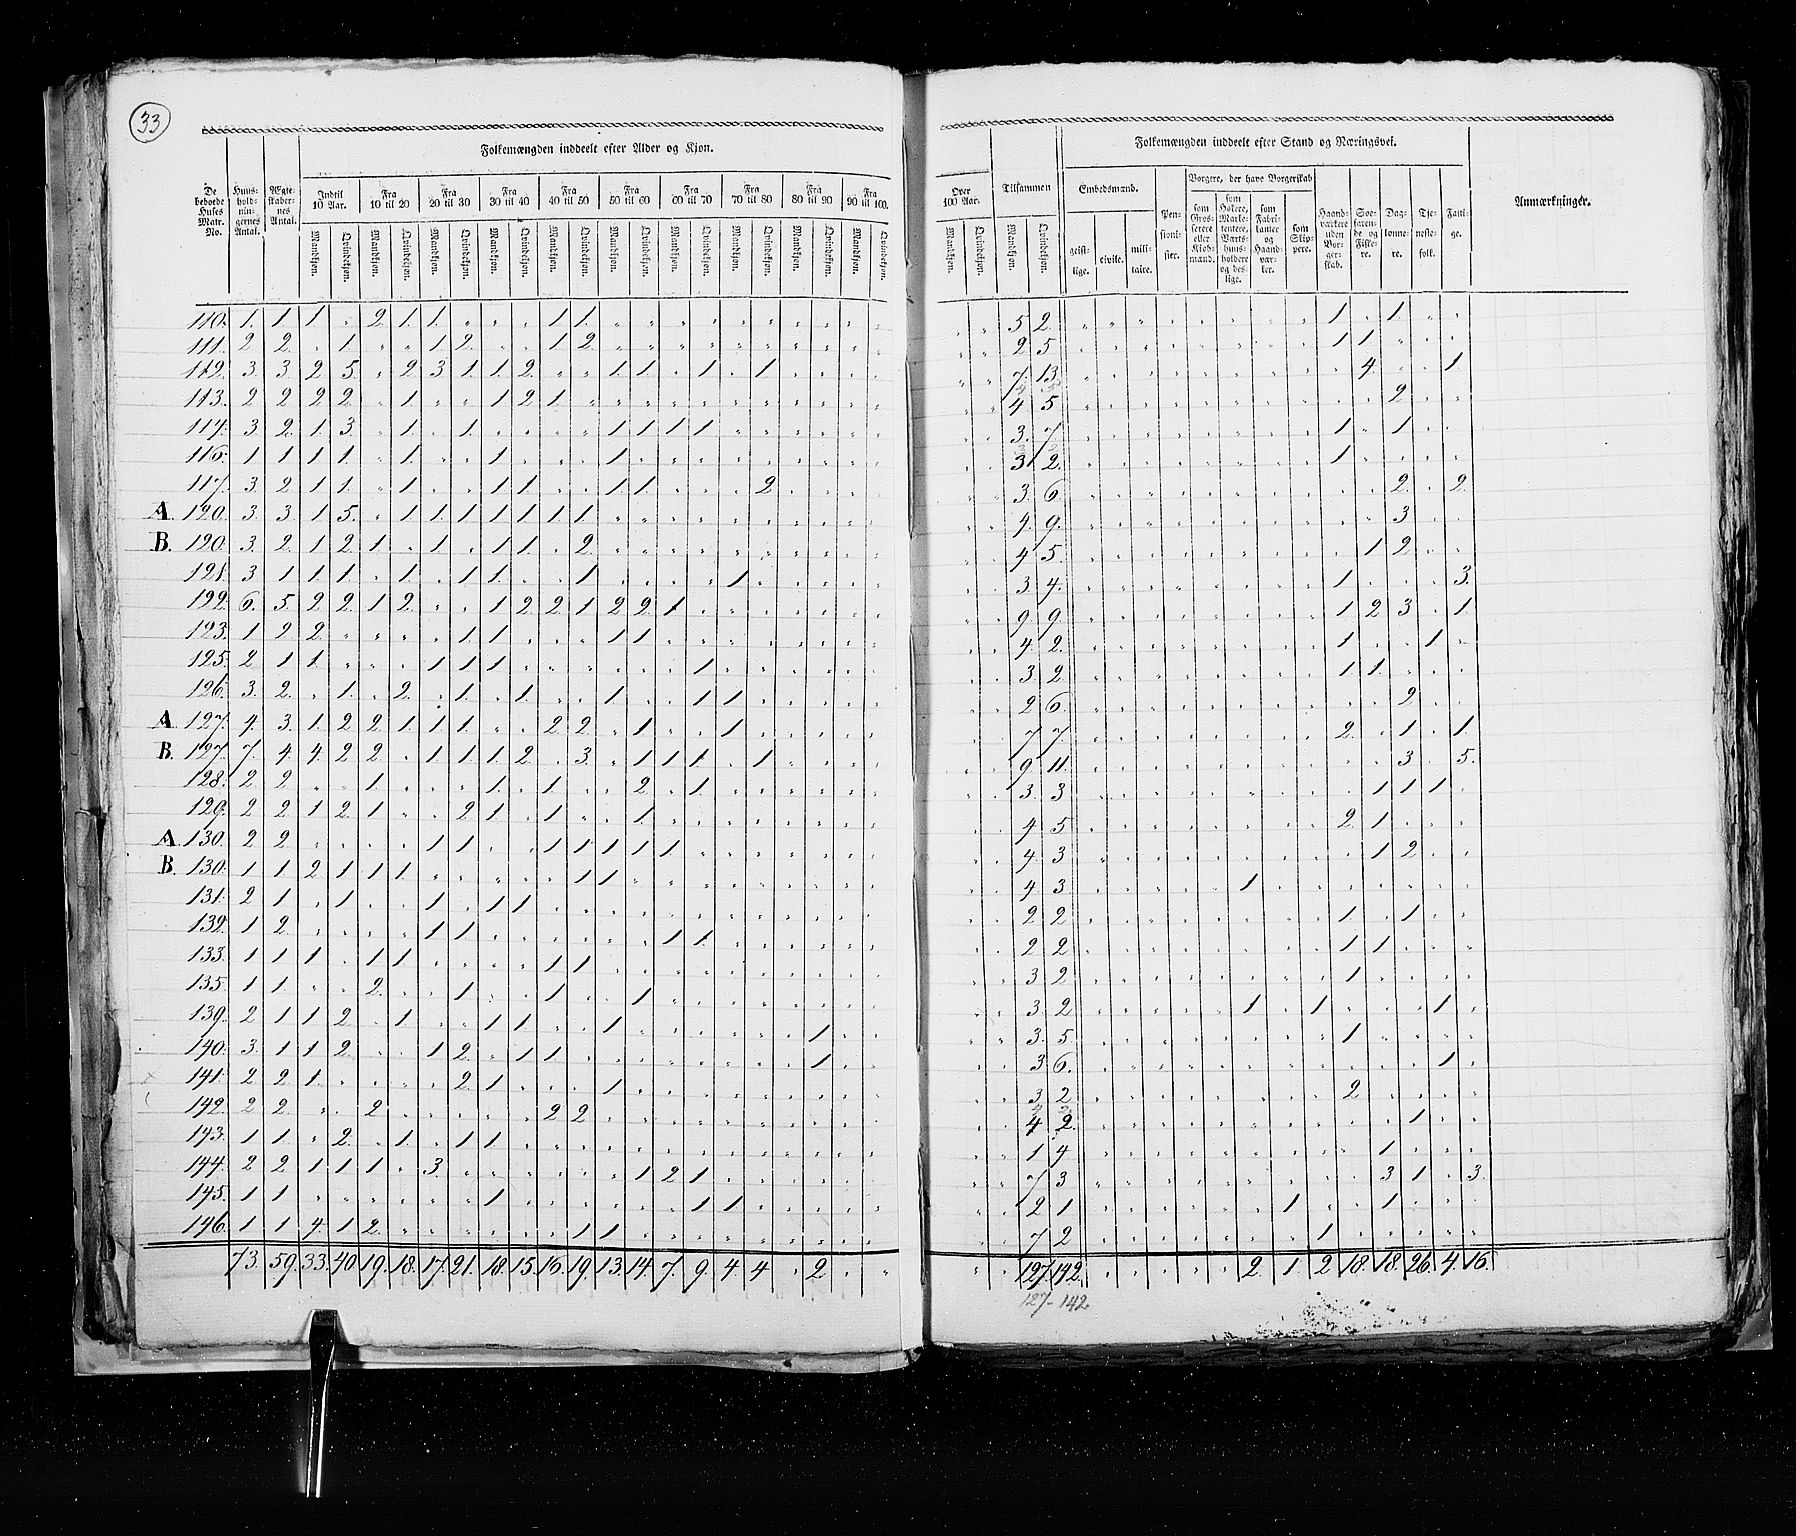 33
Folkemængden inddeelt efter Alder og Kjøn.
De beboede Huses Matr. No.
Huusholdningernes Antal.
Ægteskabernes Antal.
Indtil 10 Aar.
Fra 10 til 20
Fra 20 til 30
Fra 30 til 40
Fra 40 til 50
Fra 50 til 60
Fra 60 til 70
Fra 70 til 80
Fra 80 til 90
Fra 90 til 100.
Mandkjøn. Qvindekjøn. Mandkjøn. Qvindekjøn. Mandkjøn. Qvindekjøn. Mandkjøn. Qvindekjøn. Mandkjøn. Qvindekjøn. Mandkjøn. Qvindekjøn. Mandkjøn. Qvindekjøn. Mandkjøn. Qvindekjøn. Mandkjøn. Qvindekjøn. Mandkjøn. Qvindekjøn.
Over 100 Aar.
Mandkjøn. Qvindekjøn.
Tilsammen
Mandkjøn. Qvindekjøn.
Folkemængden inddeelt efter Stand og Næringsvei.
Embedsmænd.
geistlige. civile. militaire.
Pensionister.
Borgere, der have Borgerskab
som Grosserere eller Kjøbmænd.
som Høkere, Marketentere, Værtshuusholdere og deslige.
som Fabrikanter og Haandværker.
som Skippere.
Haandværkere uden Borgerskab.
Søefarende og Fiskere.
Daglønnere.
Tjenestefolk.
Fattige.
Anmærkninger.
110. 1. 1 1 2. 1. 1. 1 1. 5 2. 1 1.
111. 2 2. 1. 1 2. 1 2. 2 5 1 1.
112. 3 3 2 5 2 3 1. 1. 2. 1. 1. 1. 1. 7. 13. 4. 1.
113. 2 2 2 2. 1. 1 2 1. 4 5 2.
114. 3 2. 1. 3. 1. 1. 1 1 1 1. 3. 7. 1. 1.
116. 1 1 1 1. 1. 1. 1. 3 2. 1.
117. 3. 2 1 1. 1. 1 1. 1. 1. 2. 3. 6. 2. 2.
A. 120. 3. 3. 1 5. 1 1. 1 1 1 1 1. 4. 9. 3.
B. 120. 3. 2. 1 2 1. 1. 1 1. 2. 4 5. 1 2.
121. 3 1 1. 1. 1. 1 1. 1 1. 3 4. 1. 3.
122. 6. 5. 2 2 1 2. 1 2. 2 1 2 2. 1. 9 9. 1 2 3. 1.
123. 1 2 2. 1 1. 1 1. 4. 2. 1. 1.
125. 2 1 1. 1 1 1. 1. 3. 2. 1 1.
126. 3. 2. 1. 2. 1. 1. 1. 1 1. 2 6. 2.
A. 127. 4. 3. 1. 2 2. 1. 1. 1. 2 2. 1. 1. 7 7. 2. 1. 1.
B. 127. 7. 4. 4 2 2. 1 1 1. 2. 3. 1 1 1. 1. 9 11. 3. 5.
128. 2 2 1. 1. 1. 2. 1. 3. 3 1 1 1.
129. 2 2 1 2. 1. 2 1. 1. 1. 4 5 2. 1.
A. 130. 2 2. 1 1. 1 1 1 1 1. 4. 3 1 2.
B. 130. 1 1 2 1 1 1. 1 1. 4 3 1.
131. 2 1. 1. 1. 1 1. 2 2 1. 1.
132. 1 2. 1 1. 1 1. 2 2 1 1.
133. 1 1 1. 1 1. 1 1. 3 2 1.
135. 1 1. 2. 1. 1. 1. 3 2 1. 1. 1.
139. 2 1 1 2. 1. 1 1. 1. 1. 3. 5 1.
140. 3. 1 1 2. 1 2. 1 1. 1. 3 6. 1.
141. 2 2 1. 2 1. 1. 3 2 2.
142. 2 2. 2. 2 2. 4 2. 1.
143. 1 1. 2. 1. 1 1. 1 4 1.
144. 2 2 1 1 1. 3. 1 2 1. 7 3 3 1. 3.
145. 1 1. 1. 1 1. 2 1 1. 1.
146. 1 1 4. 1 2. 1 1. 7 2 1.
73. 59. 33. 40. 19. 18. 17. 21. 18. 15. 16. 19. 13. 14. 7. 9. 4. 4. 2. 127. 142. 2. 1. 2 18. 18. 26. 4. 16.
127-142